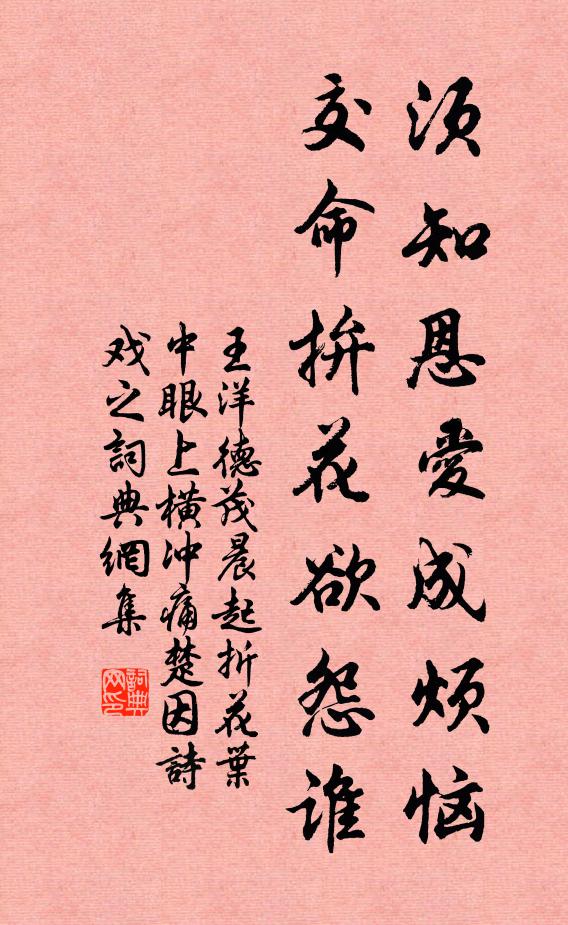 须知恩愛成烦恼
交命拚花欲怨誰
王洋德茂晨起折花葉
中眼上橫冲痛楚因詩
戏之詞典網集
詞典网印